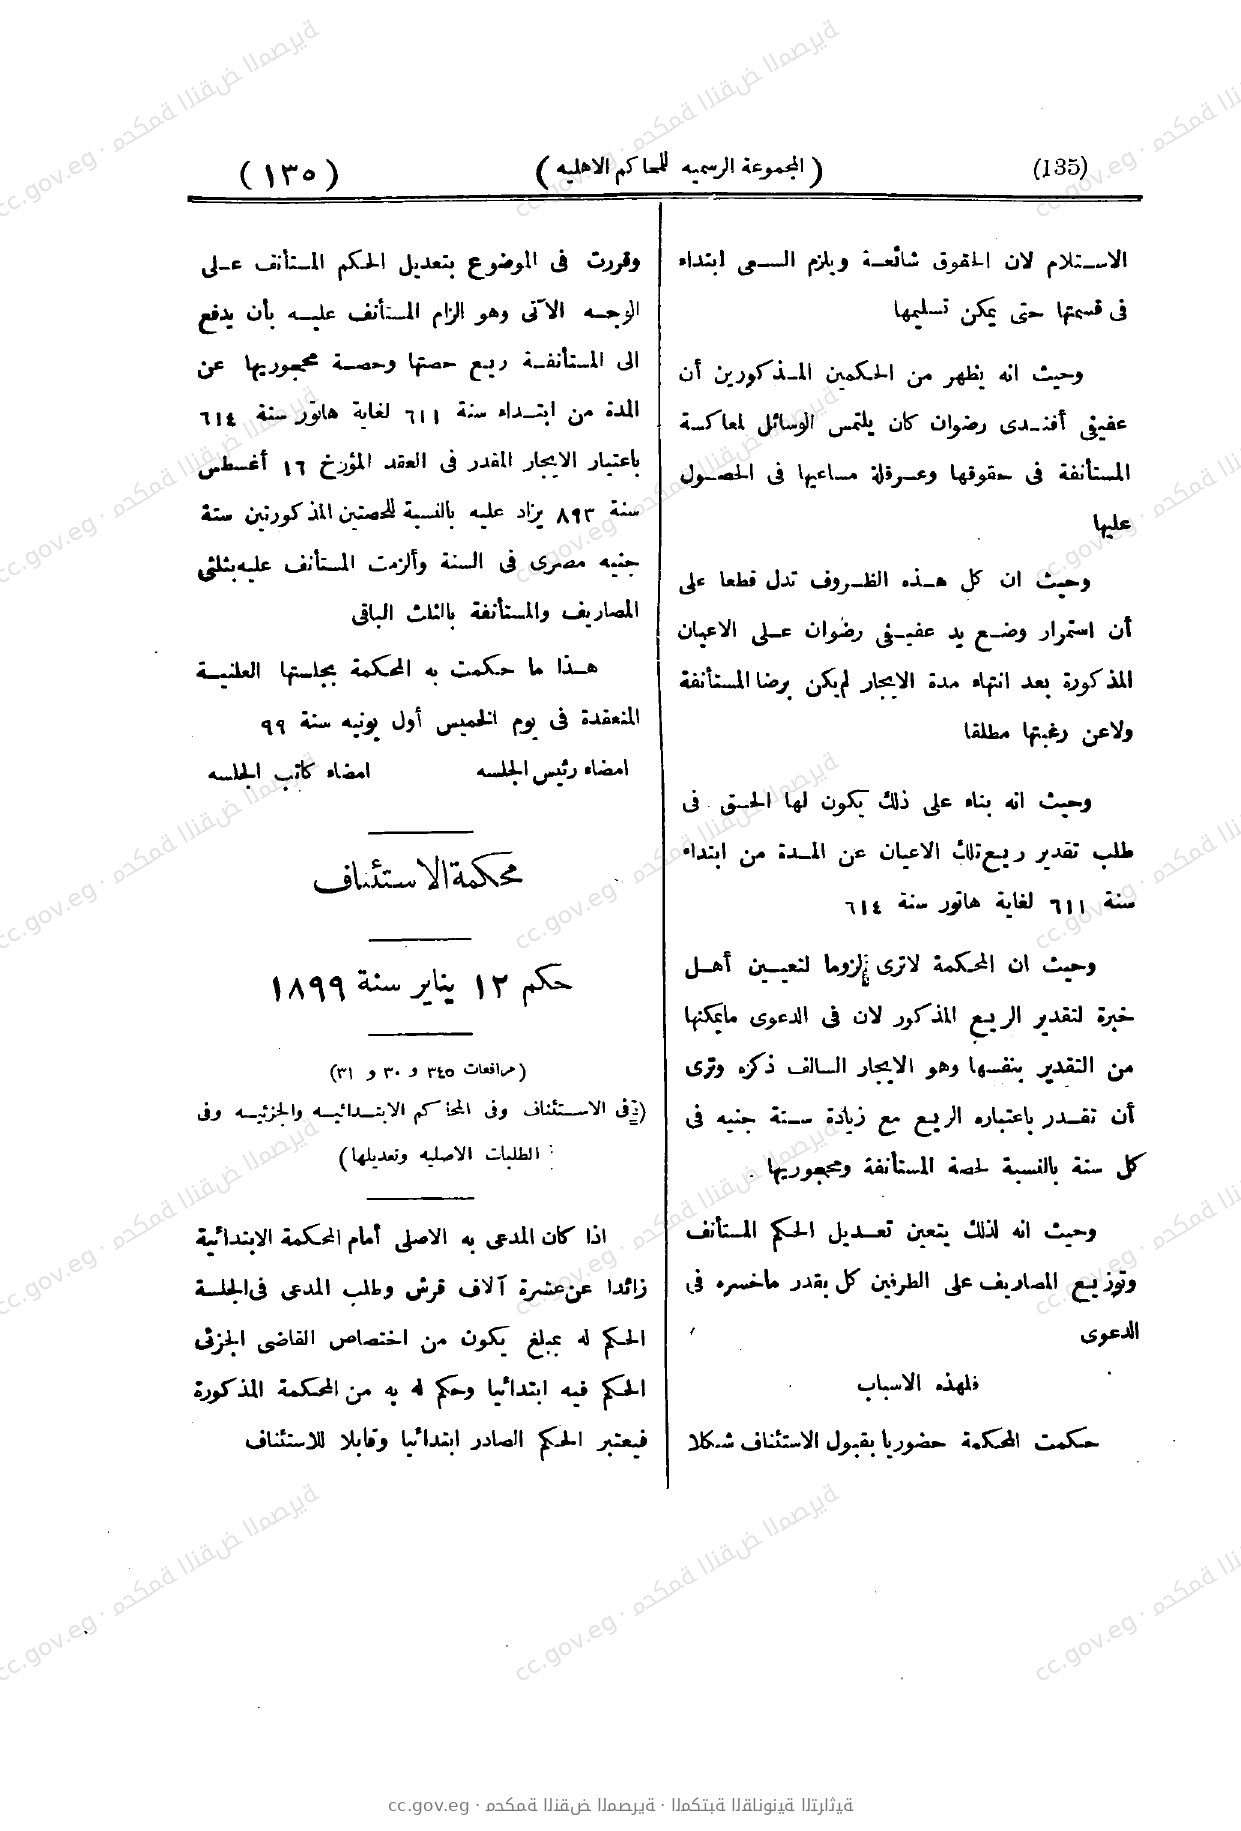 (135) (المجموعة الرسميه للمحاكم الاهليه) (١٣٥)
الاستلام لان الحقوق شائعة ويلزم السعى ابتداء
فى قسمتها حتى يمكن تسليمها
وحيث انه يظهر من الحكمين المذكورين أن
عفيفى أفندى رضوان كان يلتمس الوسائل لمعاكسة
المستأنفة فى حقوقها وعرقلة مساعيها فى الحصول
عليها
وحيث ان كل هذه الظروف تدل قطعا على
أن استمرار وضع يد عفيفى رضوان على الاعيان
المذكورة بعد انتهاء مدة الايجار لم يكن برضا المستأنفة
ولا عن رغبتها مطلقا
وحيث انه بناء على ذلك يكون لها الحق فى
طلب تقدير ريع تلك الاعيان عن المدة من ابتداء
سنة ٦١١ لغاية هاتور سنة ٦١٤
وحيث ان المحكمة لاترى لزوما لتعيين أهل
خبرة لتقدير الريع المذكور لان فى الدعوى مايمكنها
من التقدير بنفسها وهو الايجار السالف ذكره وترى
أن تقدر باعتباره الريع مع زيادة ستة جنيه فى
كل سنة بالنسبة لحصة المستأنفة ومحجوريها
وحيث انه لذلك يتعين تعديل الحكم المستأنف
وتوزيع المصاريف على الطرفين كل بقدر ماخسره فى
الدعوى
فلهذه الاسباب
حكمت المحكمة حضوريا بقبول الاستئناف شكلا
وقررت فى الموضوع بتعديل الحكم المستأنف على
الوجه الآتى وهو الزام المستأنف عليه بأن يدفع
الى المستأنفة ريع حصتها وحصة محجوريها عن
المدة من ابتداء سنة ٦١١ لغاية هاتور سنة ٦١٤
باعتبار الايجار المقدر فى العقد المؤرخ ١٦ أغسطس
سنة ٨٩٣ يزاد عليه بالنسبة للحصتين المذكورتين ستة
جنيه مصرى فى السنة وألزمت المستأنف عليه بثلثى
المصاريف والمستأنفة بالثلث الباقى
هذا ما حكمت به المحكمة بجلستها العلنية
المنعقدة فى يوم الخميس أول يونيه سنة ٩٩
امضاء رئيس الجلسه امضاء كاتب الجلسه
محكمة الاستئناف
حكم ١٢ يناير سنة ١٨٩٩
(مرافعات ٣٤٥ و ٣٠ و ٣١)
(فى الاستئناف وفى المحاكم الابتدائيه والجزئيه وفى
الطلبات الاصليه وتعديلها)
اذا كان المدعى به الاصلى أمام المحكمة الابتدائية
زائدا عن عشرة آلاف قرش وطلب المدعى فى الجلسة
الحكم له بمبلغ يكون من اختصاص القاضى الجزئى
الحكم فيه ابتدائيا وحكم له به من المحكمة المذكورة
فيعتبر الحكم الصادر ابتدائيا وقابلا للاستئناف
cc.gov.eg · محكمة النقض المصرية · المكتبة القانونية التراثية